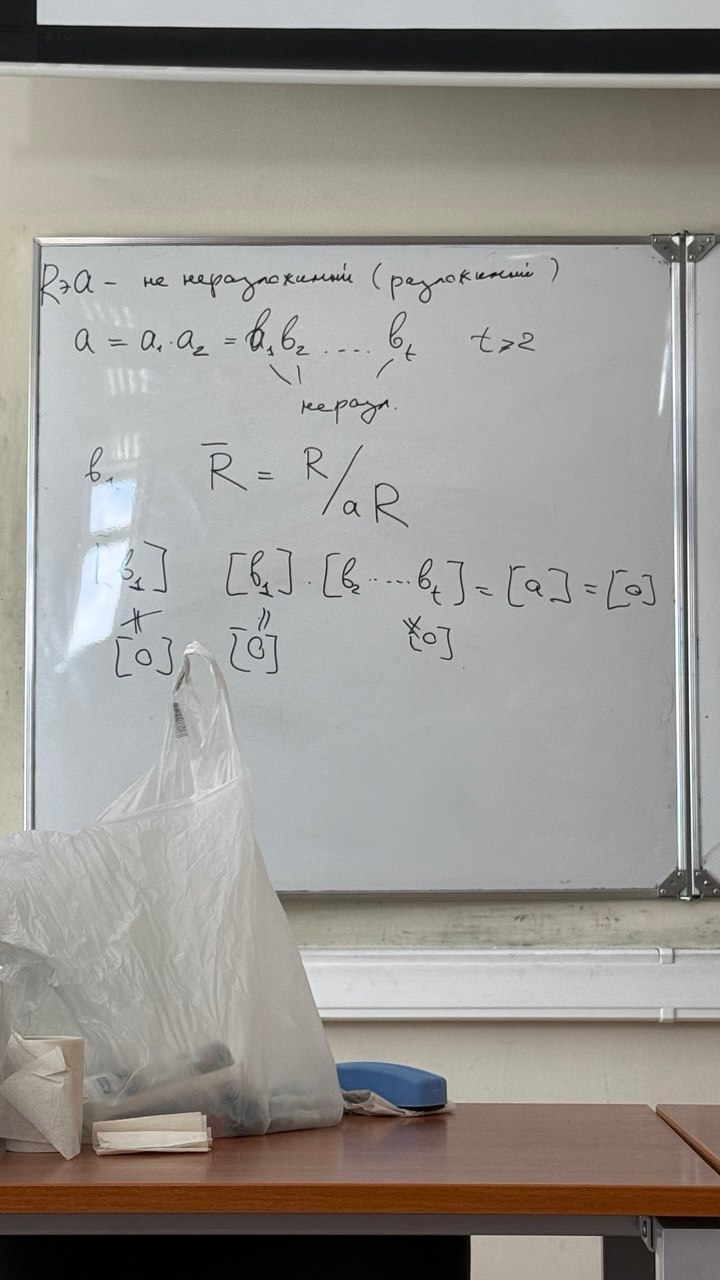 R∋a - не неразложимый (разложимый)
a = a₁·a₂ = b₁b₂ .... bₜ t⩾2
неразл.
b₁ R̅ = R/aR
[b₁] [b₁]·[b₂....bₜ] = [a] = [0]
≠ = ≠
[0] [0] [0]